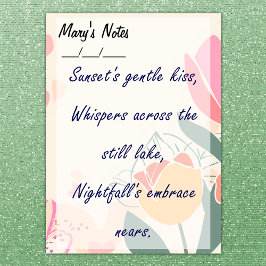 Mary's Notes
__/__/____
Sunset's gentle kiss,
Whispers across the
still lake,
Nightfall's embrace
nears.